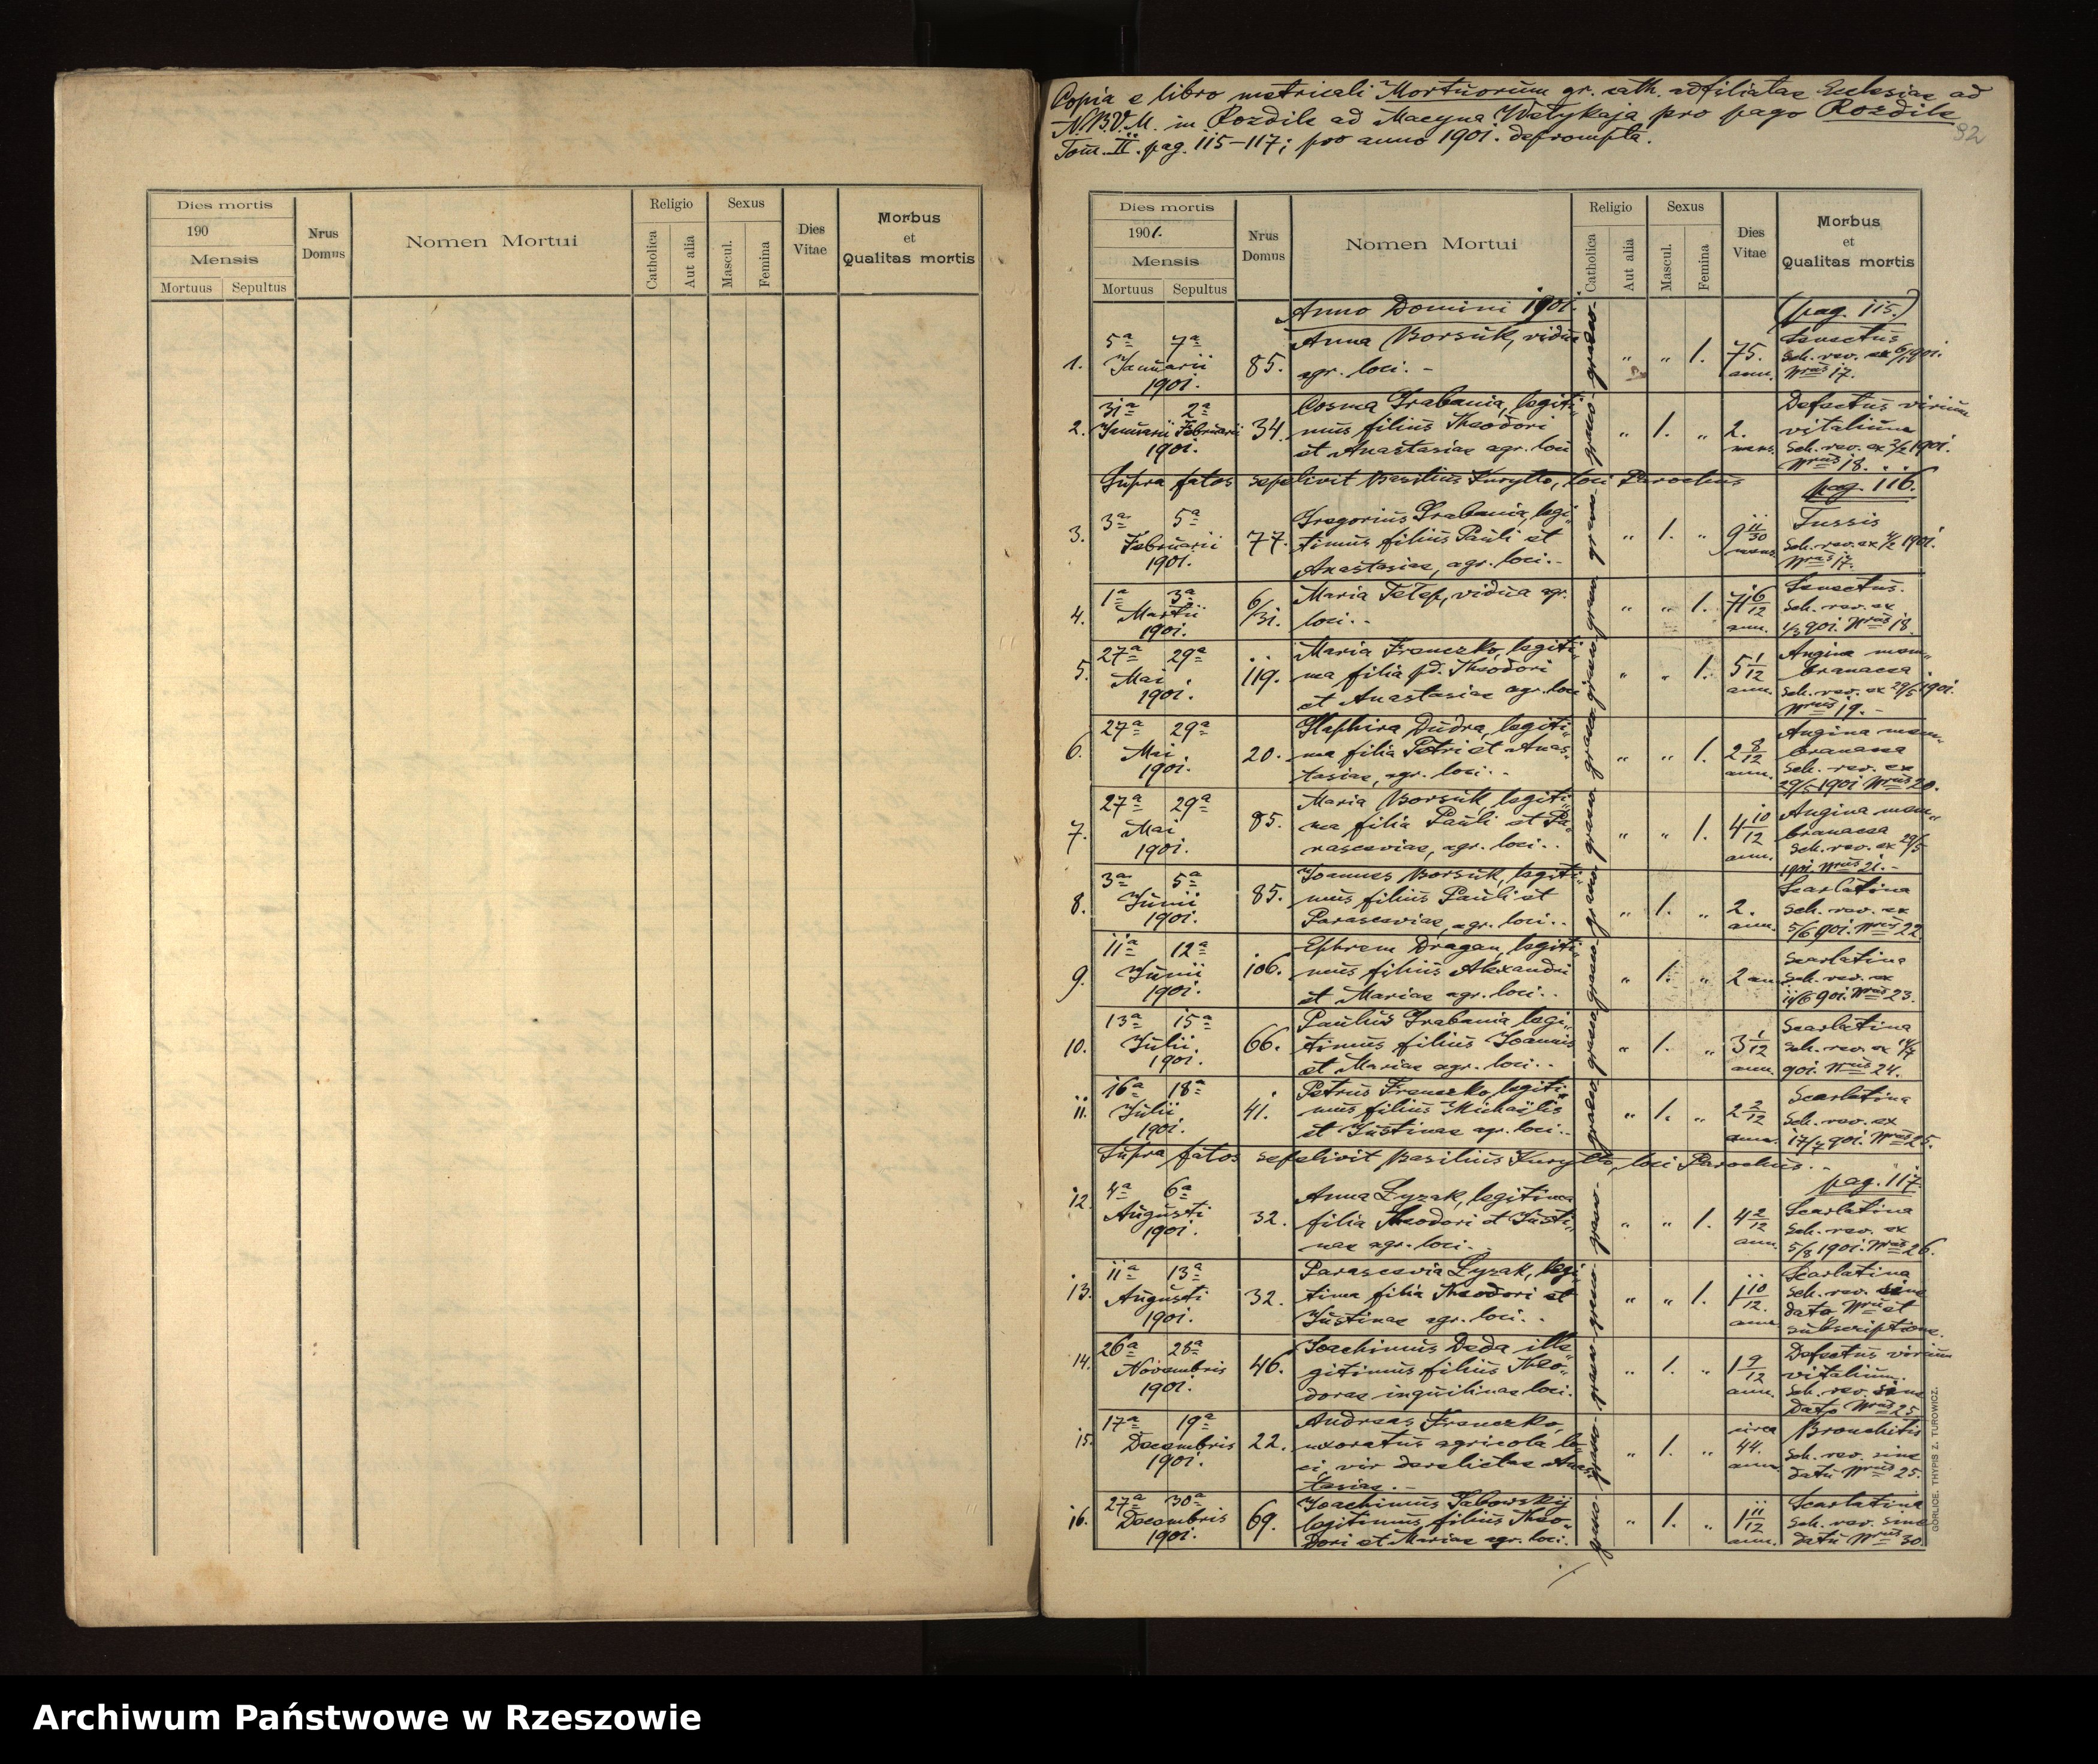 Dies mortis
190
Mensis
Mortuus Sepultus
Nrus Domus
Nomen Mortui
Religio
Catholica
Aut alia
Sexus
Mascul.
Femina
Dies Vitae
Morbus
et
Qualitas mortis
Copia e libro metricali Mortuorum gr. cath. adfiliatae Ecclesiae ad
N.B.V.M. in Rozdile ad Macyna Welykaja pro pago Rozdile
Tom. II. pag. 115-117; pro anno 1901. deprompta.
92
Dies mortis
1901.
Mensis
Mortuus Sepultus
Nrus Domus
Nomen Mortui
Religio
Catholica
Aut alia
Sexus
Mascul.
Femina
Dies Vitae
Morbus
et
Qualitas mortis
Anno Domini 1901. (pag. 115.)
1. 5a 7a Januarii 1901. 85. Anna Borsuk, vidua
agr. loci. - graeco- " " 1. 75. ann. Senectus
Sch. rev. ex 6/1 1901.
Nrus 17.
2. 31a 2a Januarii Februarii 1901. 34. Cosma Grabania, legiti-
mus filius Theodori
et Anastasiae agr. loci graeco- " 1. " 2. mens. Defectus virium
vitalium
Sch. rev. ex 2/2 1901.
Nrus 18.
Supra fatos sepelivit Basilius Kuryllo, loci Parochus pag. 116.
3. 3a 5a Februarii 1901. 77. Gregorius Grabania, legi-
timus filius Pauli et
Anastasiae, agr. loci.- graeco- " 1. " 9 11/30 mens. Tussis
Sch. rev. ex 4/2 1901.
Nrus 17.
4. 1a 3a Martii 1901. 6/31. Maria Telep, vidua agr.
loci.- graeco- " " 1. 71 6/12 ann. Senectus.
Sch. rev. ex
1/3 901. Nrus 18.
5. 27a 29a Mai 1901. 119. Maria Frenczko, legiti-
ma filia pd. Theodori
et Anastasiae agr. loci graeco- " " 1. 5 1/12 ann. Angina mem-
branacea
Sch. rev. ex 29/5 1901.
Nrus 19.-
6. 27a 29a Mai 1901. 20. Glaphira Dudra, legiti-
ma filia Petri et Anas-
tasiae, agr. loci.- graeco- " " 1. 2 8/12 ann. Angina mem-
branacea
Sch. rev. ex
29/5 1901 Nrus 20.
7. 27a 29a Mai 1901. 85. Maria Borsuk, legiti-
ma filia Pauli et Pa-
rasceviae, agr. loci.- graeco- " " 1. 4 10/12 ann. Angina mem-
branacea
Sch. rev. ex 29/5
1901 Nrus 21.-
8. 3a 5a Junii 1901. 85. Joannes Borsuk, legiti-
mus filius Pauli et
Parasceviae, agr. loci.- graeco- " 1. " 2. ann. Scarlatina
Sch. rev. ex
5/6 901. Nrus 22
9. 11a 12a Junii 1901. 106. Ephrem Dragan, legiti-
mus filius Alexandri
et Mariae agr. loci.- graeco- " 1. " 2 ann. Scarlatina
Sch. rev. ex
11/6 901. Nrus 23.
10. 13a 15a Julii 1901. 66. Paulus Grabania legi-
timus filius Joannis
et Mariae agr. loci.- graeco- " 1. " 3 1/12 ann. Scarlatina
Sch. rev. ex 14/7
901. Nrus 24.
11. 16a 18a Julii 1901. 41. Petrus Frenczko, legiti-
mus filius Michaelis
et Justinae agr. loci.- graeco- " 1. " 2 2/12 ann. Scarlatina
Sch. rev. ex
17/7 901. Nrus 25.
Supra fatos sepelivit Basilius Kuryllo, loci Parochus.-
pag. 117.
12. 4a 6a Augusti 1901. 32. Anna Lyzak, legitima
filia Theodori et Justi-
nae agr. loci.- graeco- " " 1. 4 2/12 ann. Scarlatina
Sch. rev. ex
5/8 1901. Nrus 26.
13. 11a 13a Augusti 1901. 32. Parascevia Lyzak, legi-
tima filia Theodori et
Justinae agr. loci.- graeco- " " 1. 1 10/12. ann. Scarlatina
Sch. rev. sine
dato Nru et
subscriptione.
14. 26a 28a Novembris 1901. 46. Joachimus Dada ille-
gitimus filius Theo-
dorae inquilinae loci. graeco- " 1. " 1 9/12 ann. Defectus virium
vitalium.
Sch. rev. sine
dato Nrus 25
15. 17a 19a Decembris 1901. 22. Andreas Frenczko,
uxoratus agricola lo-
ci, vir derelictae Anas-
tasiae.- graeco- " 1. " circa 44. ann. Bronchitis
Sch. rev. sine
datu Nrus 25.
16. 27a 30a Decembris 1901. 69. Joachimus Sabowskij
legitimus filius Theo-
dori et Mariae agr. loci. graeco- " 1. " 1 11/12 ann. Scarlatina
Sch. rev. sine
datu Nrus 30.
GORLICE. THYPIS Z. TUROWICZ.
Archiwum Państwowe w Rzeszowie